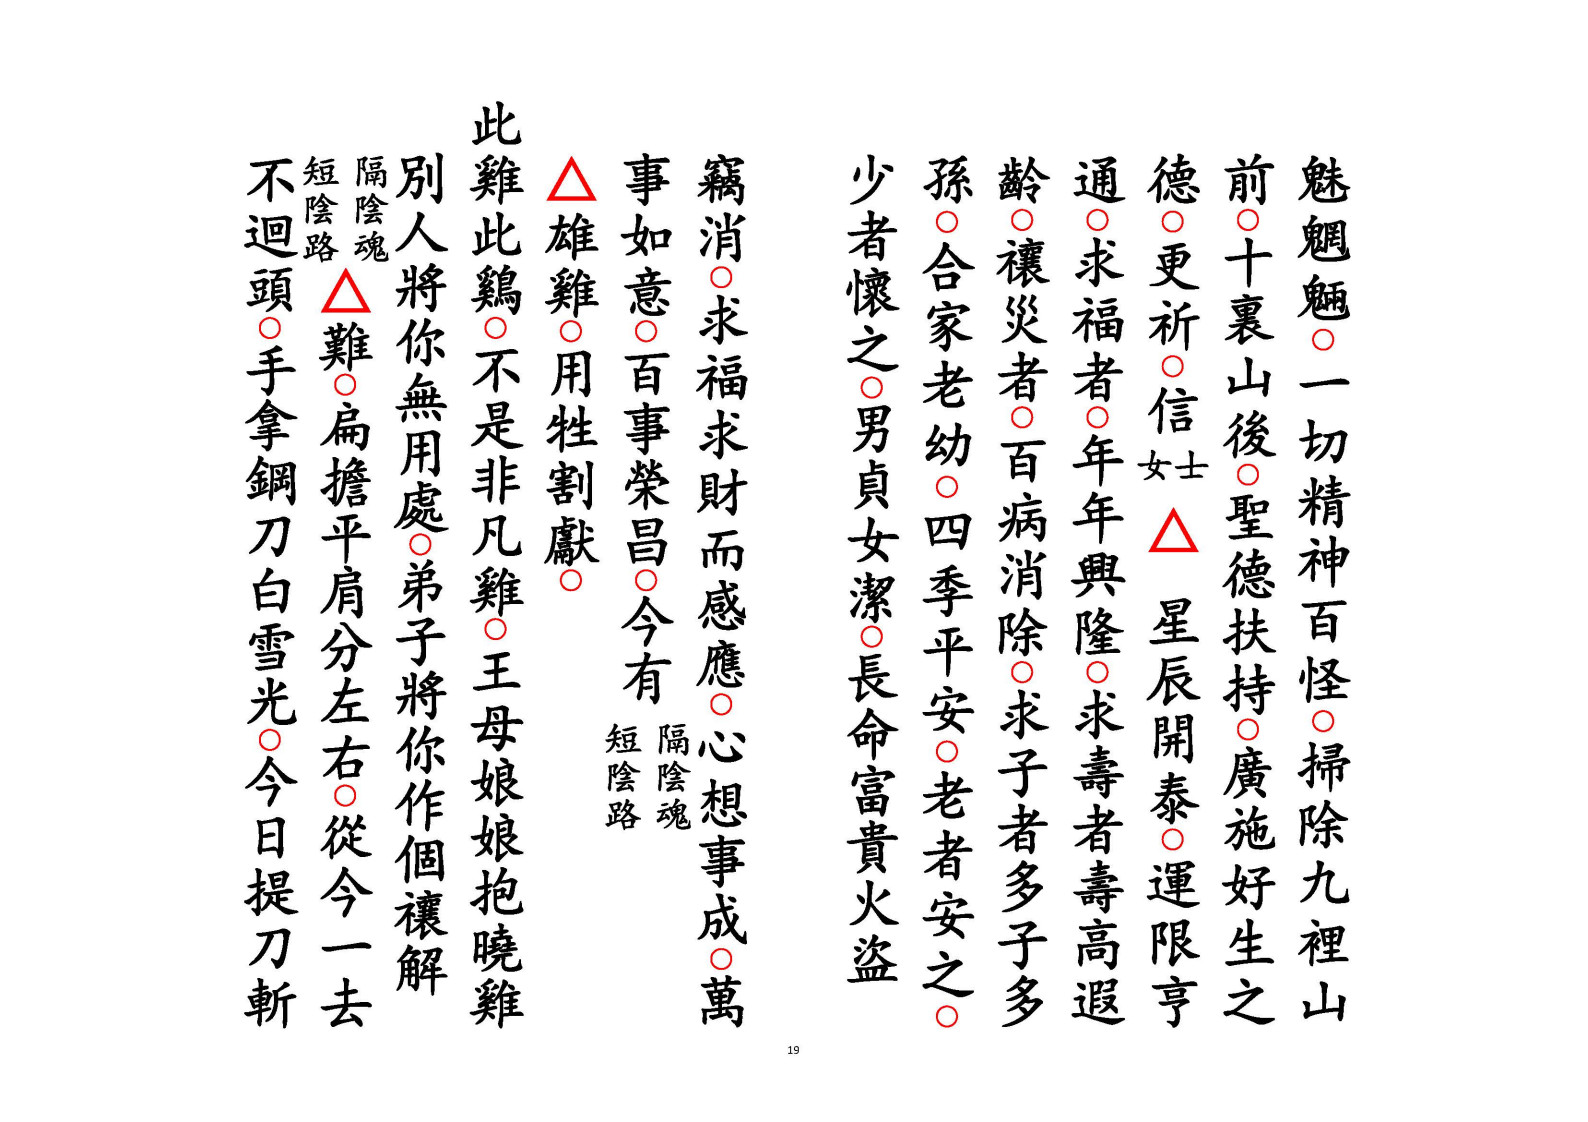 魅魍魎○一切精神百怪○掃除九裡山
前○十裏山後○聖德扶持○廣施好生之
德○更祈○信女士△星辰開泰○運限亨
通○求福者○年年興隆○求壽者壽高遐
齡○禳災者○百病消除○求子者多子多
孫○合家老幼○四季平安○老者安之○
少者懷之○男貞女潔○長命富貴火盜
竊消○求福求財而感應○心想事成○萬
事如意○百事榮昌○今有隔陰魂短陰路
△雄雞○用牲割獻○
此雞此鷄○不是非凡雞○王母娘娘抱曉雞
別人將你無用處○弟子將你作個禳解
隔陰魂短陰路△難○扁擔平肩分左右○從今一去
不迴頭○手拿鋼刀白雪光○今日提刀斬
19